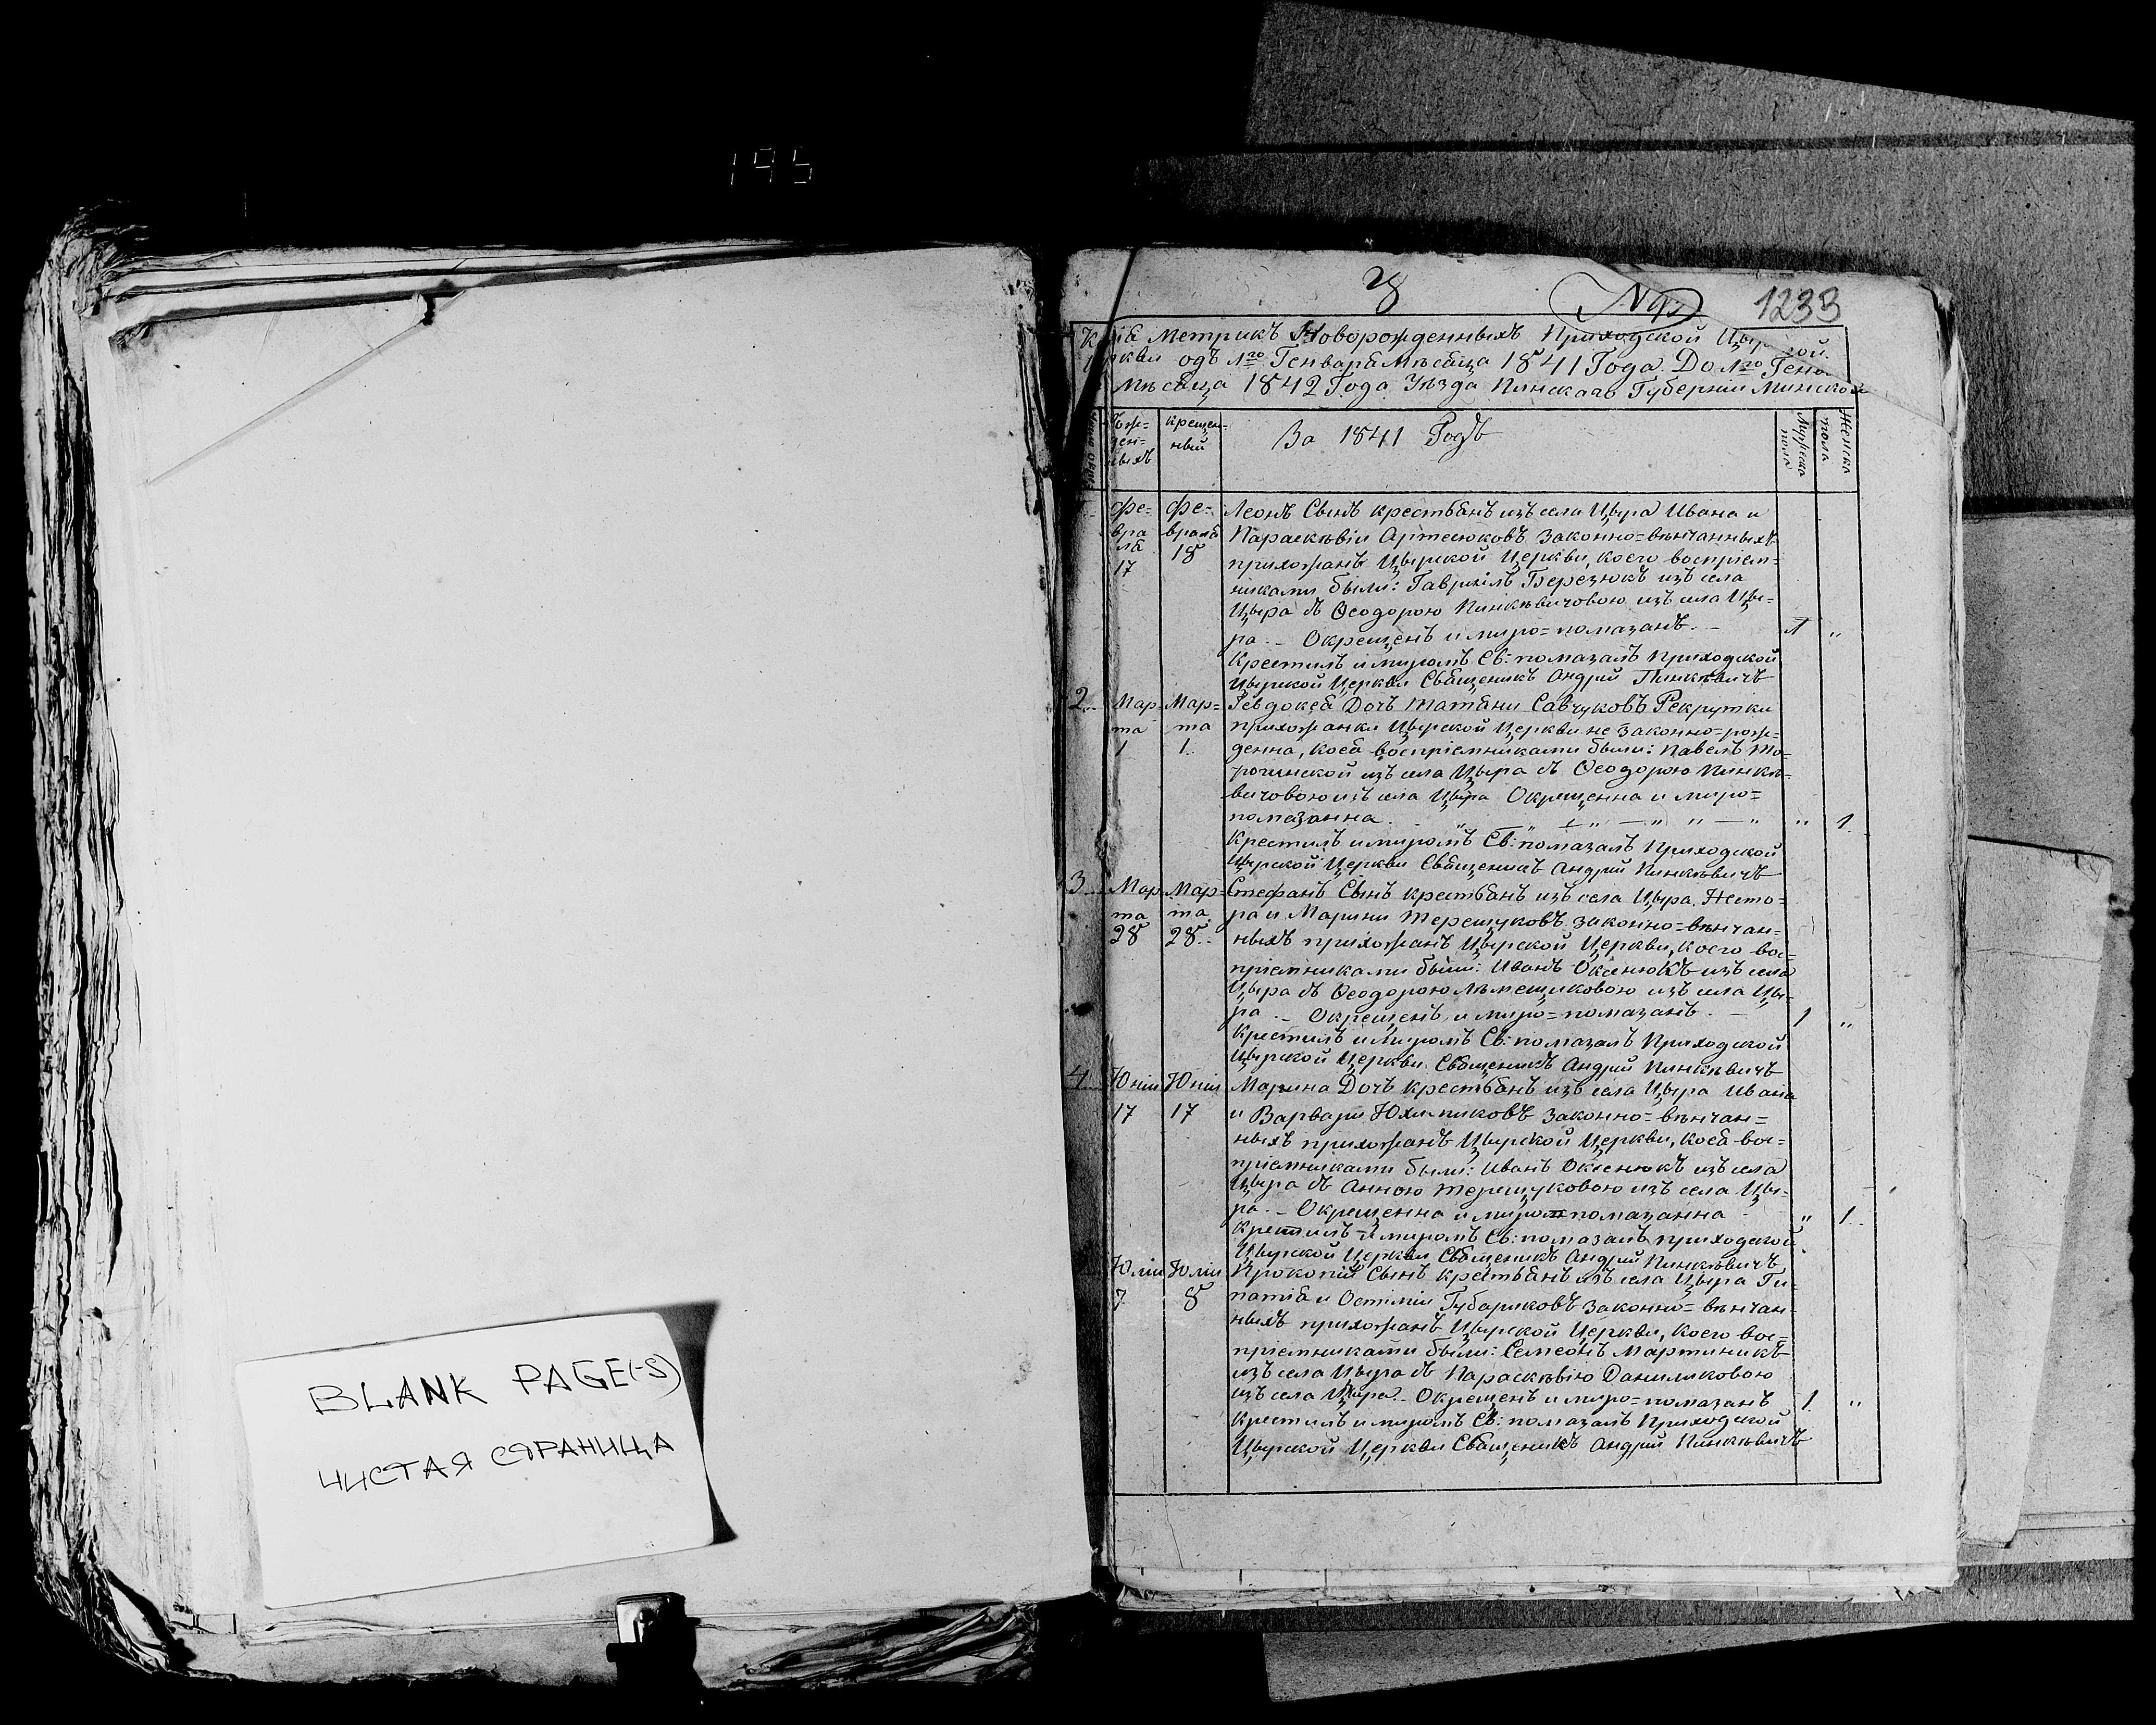 195
BLANK PAGE(-S)
ЧИСТАЯ СТРАНИЦА
1233
Метрикъ Новорожденныхъ Приходской
одъ 1го Генваря Мѣсяца 1841 Года. До 1го
мѣсяца 1842 Года Уѣзда Пинскаго Губерніи Минской
крещен=
ный
За 1841 Годъ
Мужеска
пола
Женска
пола
фе= фе= Леонъ Сынъ крестьянъ изъ села Цыра Ивана и
вра враля Параскѣвіи Артесюковъ законно=вѣнчанныхъ
ля 18 прихожанъ Цырской Церкви, коего воспріем=
17 никами были: Гавріилъ Березюкъ изъ села
Цыра съ Ѳеодорою Пинкѣвичовою изъ села Цы=
ра. – Окрещенъ и миро=помазанъ. – 1 "
Крестилъ и миромъ Св: помазалъ Приходской
Цырской Церкви Священикъ Андрій Пинкѣвичъ
2 Мар Мар= Гевдокея Дочъ Татяни Савчуковъ Рекрутки
та та прихожанки Цырской Церкви не законно=рож=
1 1. денна, коея воспріемниками были: Павелъ
изъ села Цыра съ Ѳеодорою Пинкѣ=
вичовою изъ села Цыра Окрещенна и миро=
помазанна. " 1.
Крестилъ и миромъ Св: помазалъ Приходской
Цырской Церкви Священикъ Андрій Пинкѣвичъ
3 Мар Мар= Стефанъ Сынъ крестьянъ изъ села Цыра Несто=
та та ра и Марини Терещуковъ законно=вѣнчан=
28 28 ныхъ прихожанъ Цырской Церкви, коего вос=
пріемниками были: Иванъ Оксенюкъ изъ села
Цыра съ Ѳеодорою изъ села Цы=
ра. – Окрещенъ и миро=помазанъ. – 1 "
Крестилъ и миромъ Св: помазалъ Приходской
Цырской Церкви Священикъ Андрій Пинкѣвичъ
4 Юнія Юнія Марина Дочъ крестьянъ изъ села Цыра Ивана
17 17 и Варвари законно=вѣнчан=
ныхъ прихожанъ Цырской Церкви, коея вос=
пріемниками были: Иванъ Оксенюкъ изъ села
Цыра съ Анною Терещуковою изъ села Цы=
ра. – Окрещенна и миро=помазанна " 1.
Крестилъ и миромъ Св: помазалъ приходской
Цырской Церкви Священикъ Андрій Пинкѣвичъ
Юлія Юлія Прокопій Сынъ крестьянъ изъ села Цыра Ги=
7 8 патія и законно=вѣнчан=
ныхъ прихожанъ Цырской Церкви, коего вос=
пріемниками были: Семеонъ Мартиникъ
изъ села Цыра съ Параскѣвіею Даниликовою
изъ села Цыра. – Окрещенъ и миро=помазанъ 1. "
Крестилъ и миромъ Св: помазалъ Приходской
Цырской Церкви Священикъ Андрій Пинкѣвичъ